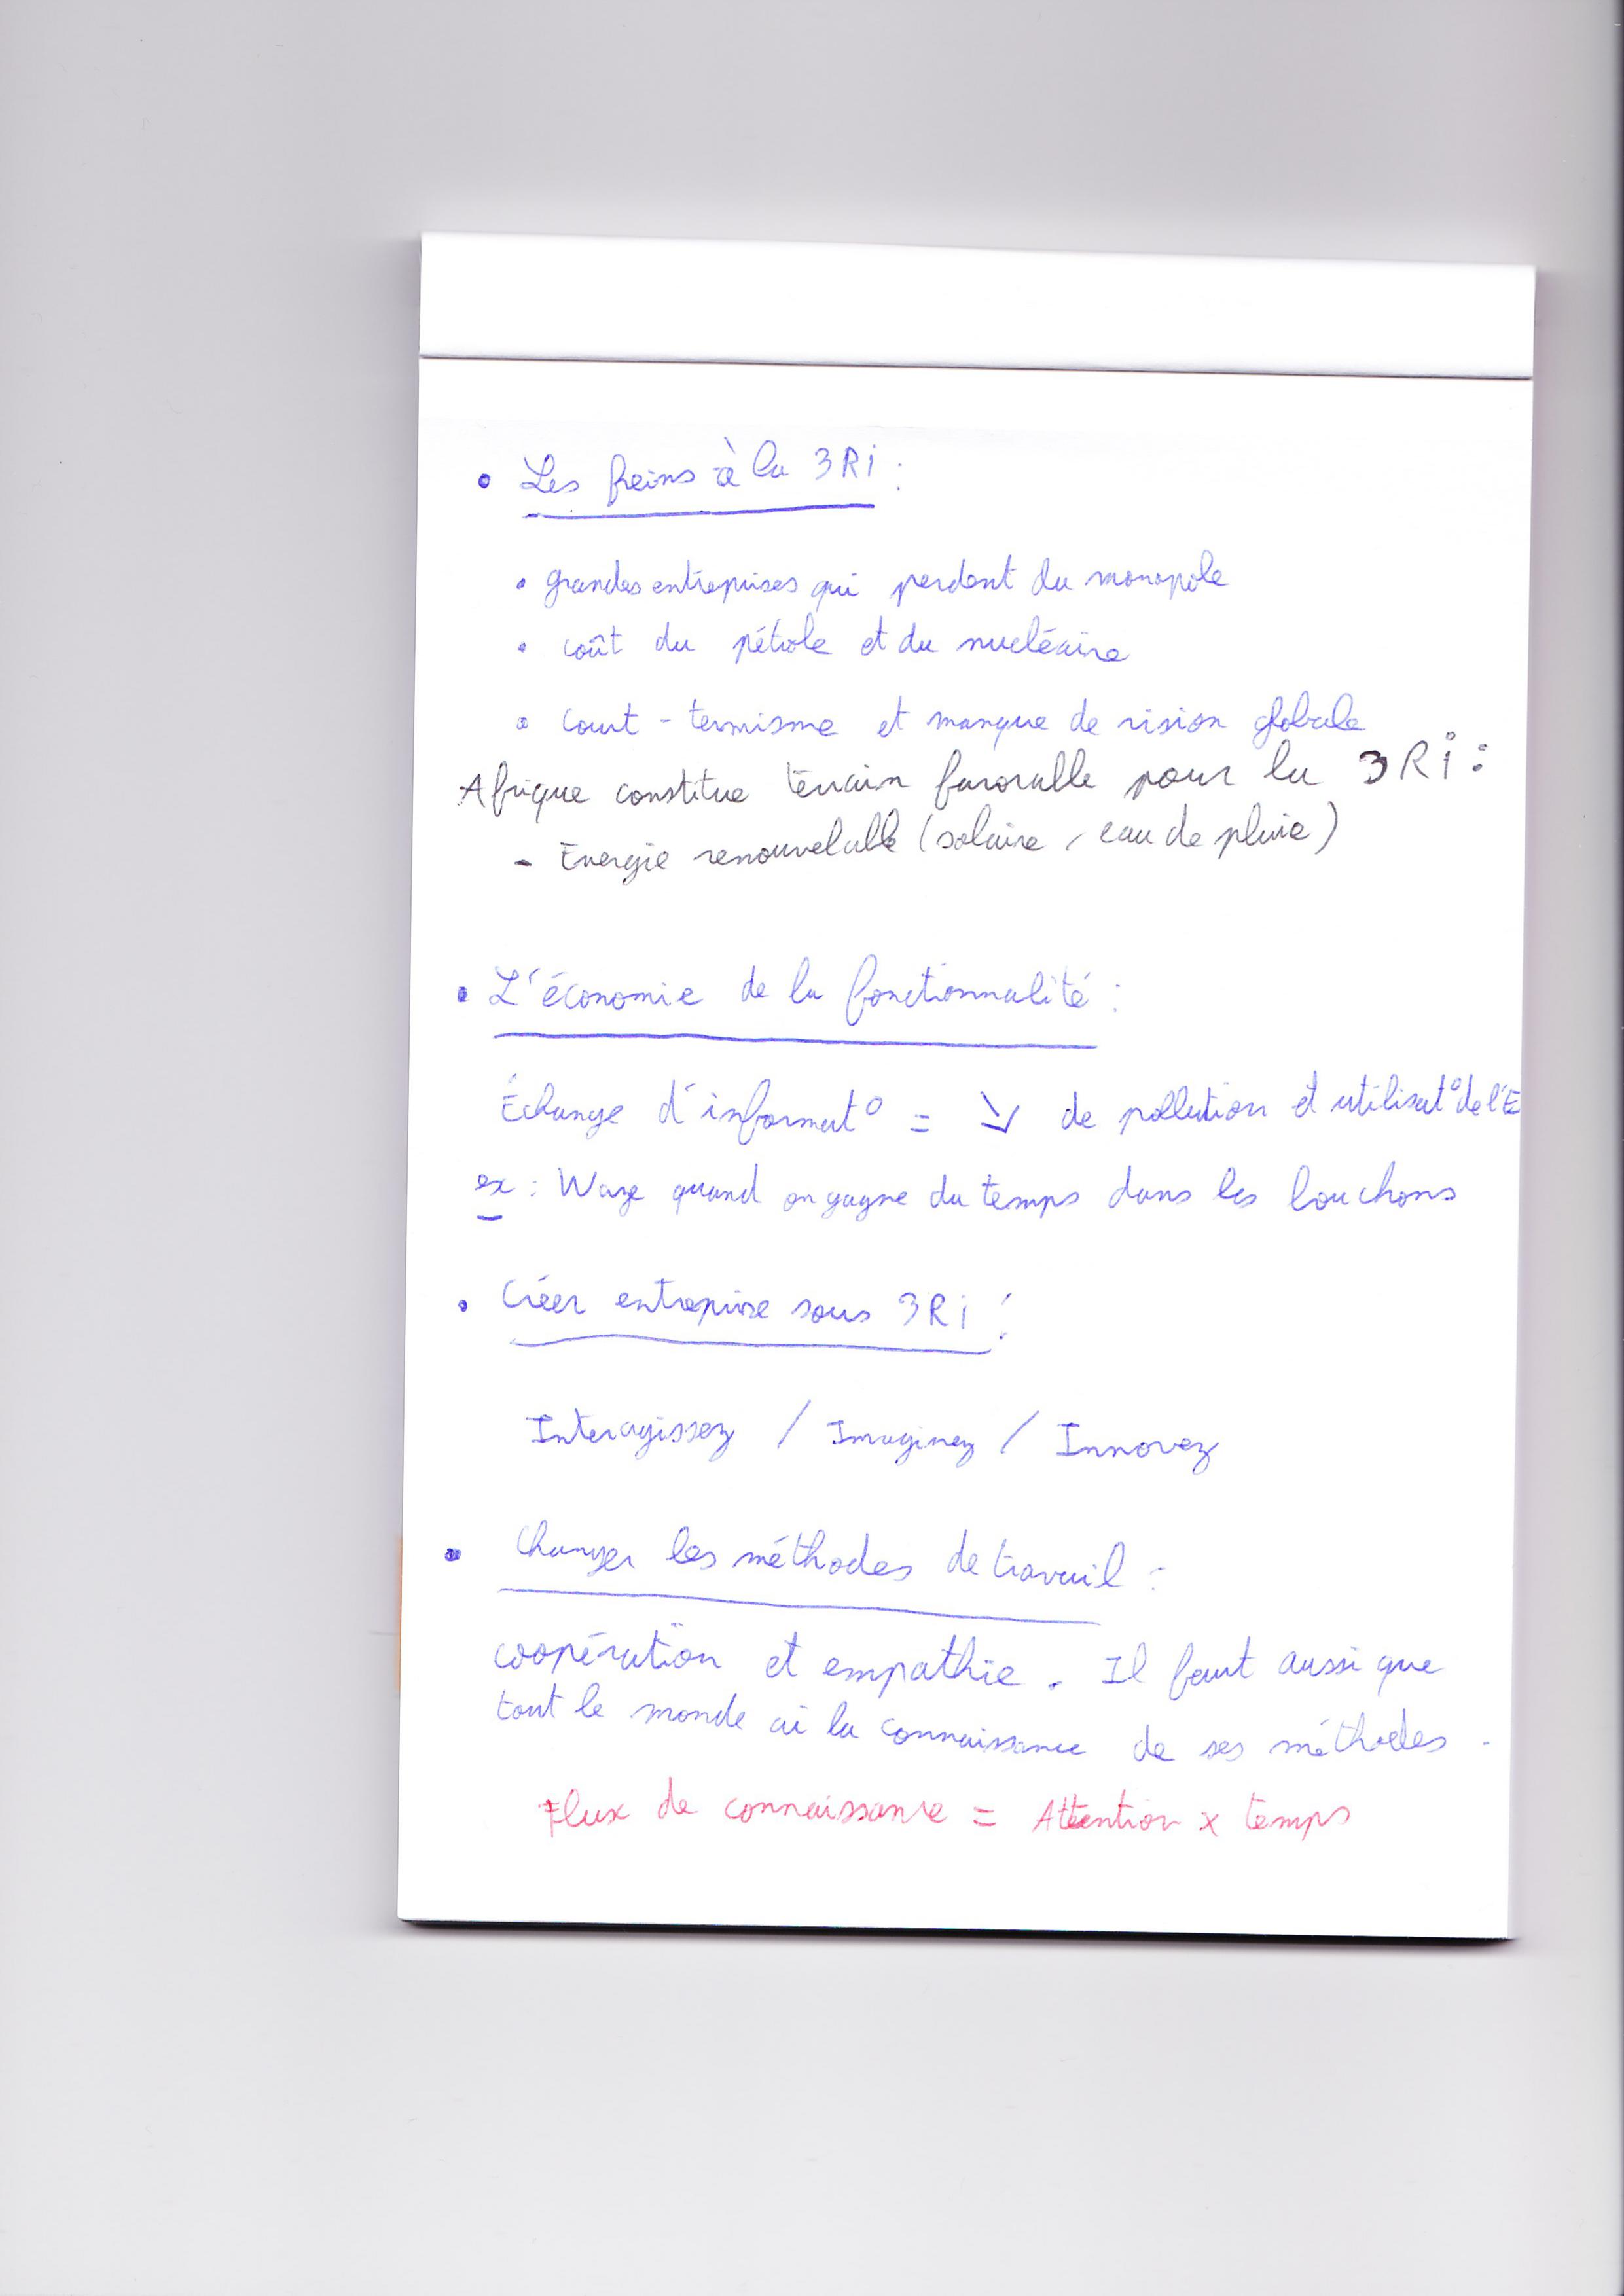 • Les freins à la 3Ri :
• grandes entreprises qui perdent du monopole
• coût du pétrole et du nucléaire
• court-termisme et manque de vision globale
Afrique constitue terrain favorable pour la 3Ri :
- Energie renouvelable (solaire, eau de pluie)
• L'économie de la fonctionnalité :
Échange d'informat° = ↘ de pollution et utilisat° de l'E
ex : Waze quand on gagne du temps dans les bouchons
• Créer entreprise sous 3Ri :
Interagissez / Imaginez / Innovez
• Changer les méthodes de travail :
coopération et empathie. Il faut aussi que
tout le monde ai la connaissance de ses méthodes.
Flux de connaissance = Attention x temps